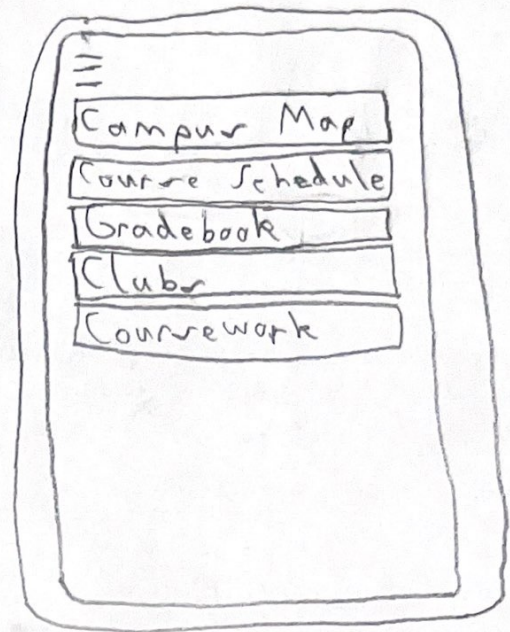 Campus Map
Course Schedule
Gradebook
Clubs
Coursework